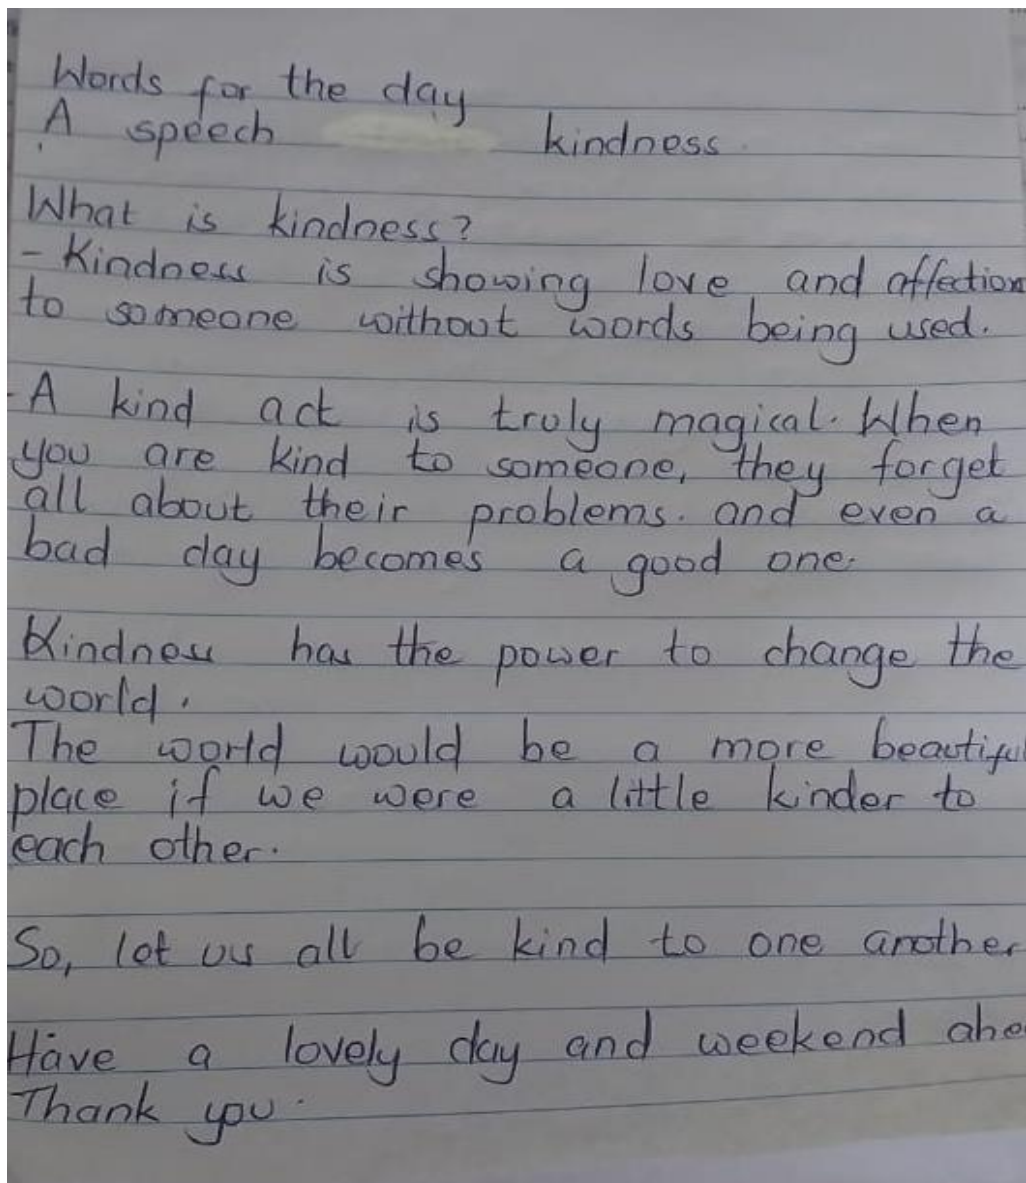 Words for the day
A speech kindness.
What is kindness?
- Kindness is showing love and affection
to someone without words being used.
- A kind act is truly magical. When
you are kind to someone, they forget
all about their problems. and even a
bad day becomes a good one.
Kindness has the power to change the
world.
The world would be a more beautiful
place if we were a little kinder to
each other.
So, let us all be kind to one another
Have a lovely day and weekend
Thank you.